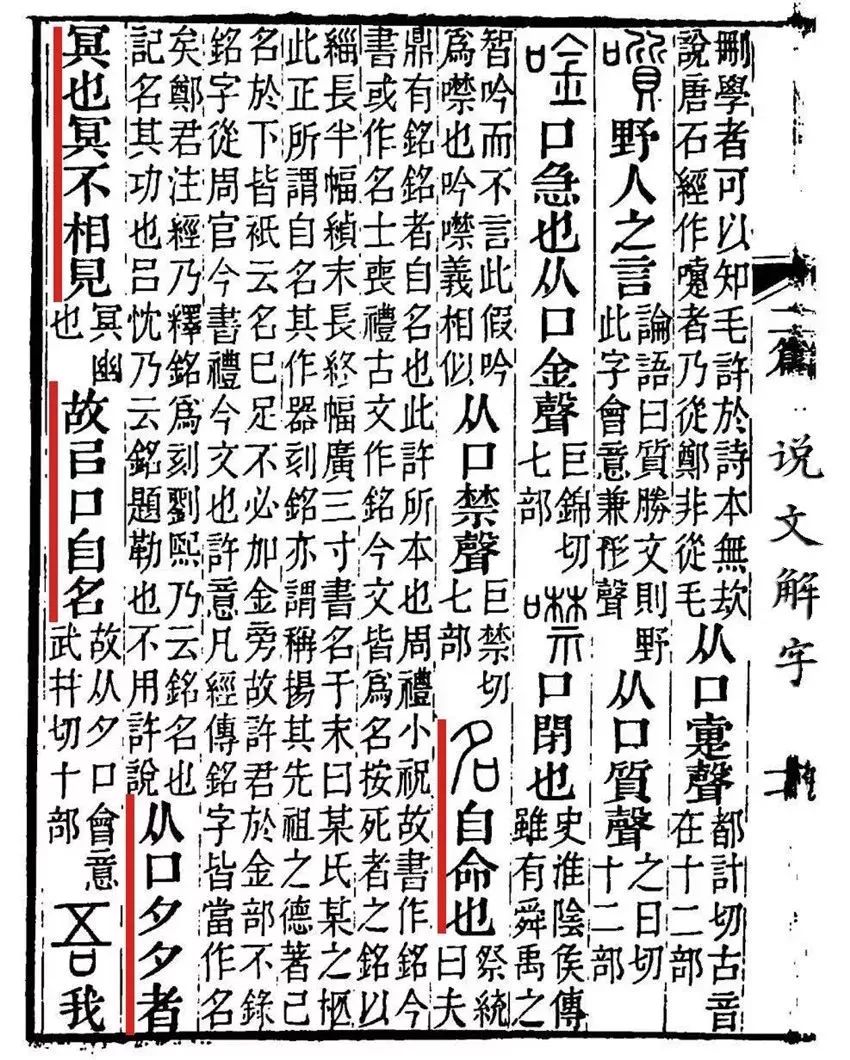 刪學者可以知毛許於詩本無
說唐石經作嚏者乃從鄭非從毛
从口疐聲
都計切古音
在十二部
野人之言
論語曰質勝文則野
此字會意兼形聲
从口質聲
之日切
十二部
唫口急也从口金聲
巨錦切
七部
噤口閉也
史淮陰侯傳
雖有舜禹之
智吟而不言此假吟
爲噤也吟噤義相似
从口禁聲
巨禁切
七部
名自命也
祭統
曰夫
鼎有銘銘者自名也此許所本也周禮小祝故書作銘今
書或作名士喪禮古文作銘今文皆爲名按死者之銘以
緇長半幅緽末長終幅廣三寸書名于末曰某氏某之柩
此正所謂自名其作器刻銘亦謂稱揚其先祖之德著己
名於下皆衹云名已足不必加金旁故許君於金部不錄
銘字從周官今書禮今文也許意凡經傳銘字皆當作名
矣鄭君注經乃釋銘爲刻劉熙乃云銘名也
記名其功也呂忱乃云銘題勒也不用許說
从口夕夕者
冥也冥不相見
冥幽
也
故㠯口自名
故从夕口會意
武幷切十部
吾我
二篇
说文解字